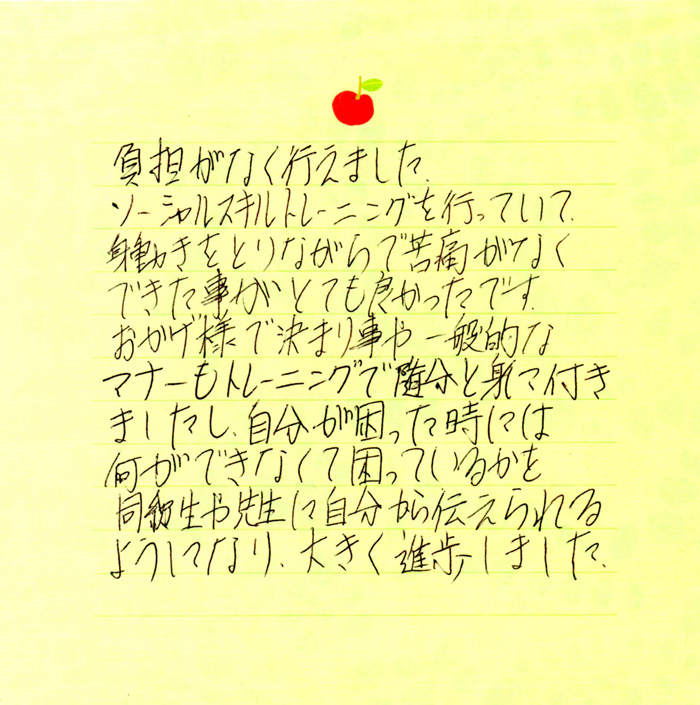 負担がなく行えました.
ソーシャルスキルトレーニングを行っていて.
身動きをとりながらで苦痛がなく
できた事がとても良かったです.
おかげ様で決まり事や一般的な
マナーもトレーニングで随分と身に付き
ましたし、自分が困った時には
何ができなくて困っているかを
同級生や先生に自分から伝えられる
ようになり、大きく進歩しました.